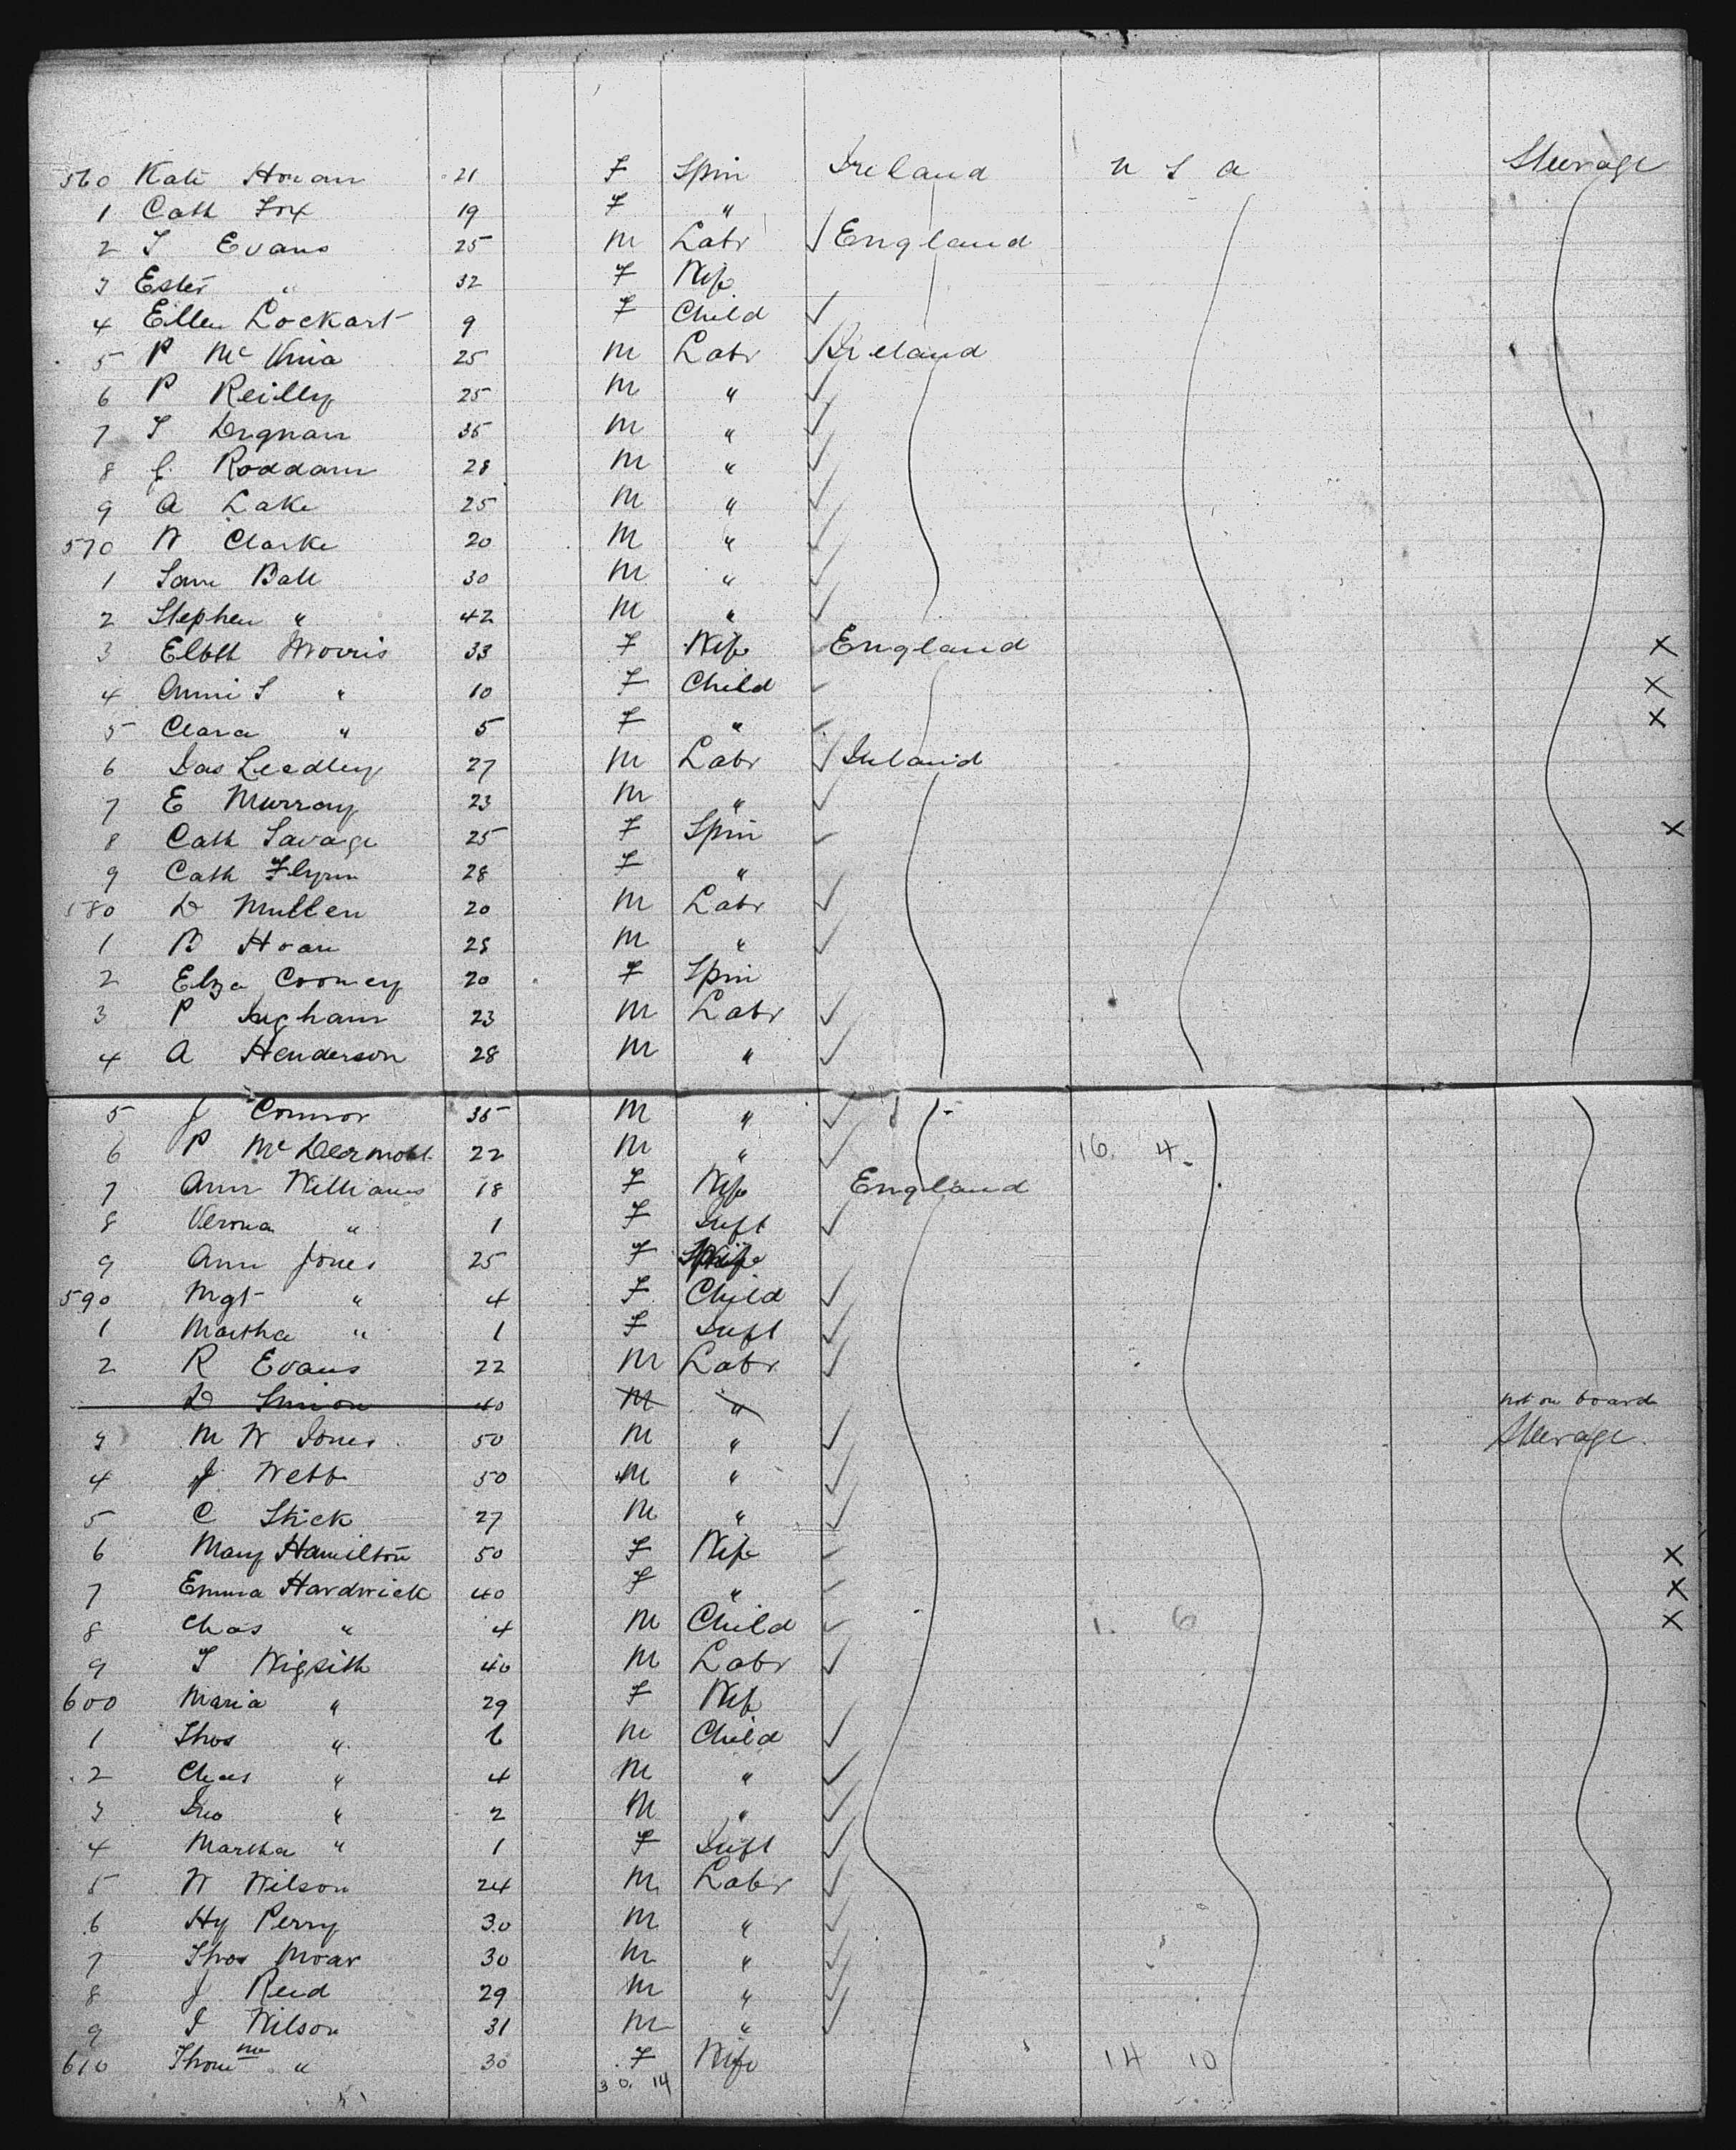 560 Kate Horan 21 F Spin Ireland U S A Steerage
1 Cath Fox 19 F "
2 T Evans 25 M Labr England
3 Ester " 32 F Wife
4 Ellen Lockart 9 F Child
5 P Mc 25 M Labr Ireland
6 P Reilly 25 M "
7 T Dignan 35 M "
8 J. Roddam 28 M "
9 A Lake 25 M "
570 W Clarke 20 M "
1 Sam Ball 30 M "
2 Stephen " 42 M "
3 Elbth Morris 33 F Wife England X
4 Annie S " 10 F Child X
5 Clara " 5 F " X
6 Jas Leedley 27 M Labr Ireland
7 E Murray 23 M "
8 Cath Savage 25 F Spin X
9 Cath Flynn 28 F "
580 D Mullen 20 M Labr
1 B Hoan 28 M "
2 Elza Cooney 20 F Spin
3 P Ingham 23 M Labr
4 A Henderson 28 M "
5 J Connor 35 M "
6 P McDermott 22 M " 16. 4
7 Ann Williams 18 F Wife England
8 Verona " 1 F Inft
9 Ann Jones 25 F Wife
590 Mgt " 4 F Child
1 Martha " 1 F Inft
2 R Evans 22 M Labr
D 40 M " not on board
3 M W Jones 50 M " Steerage
4 J Webb 50 M "
5 C Stick 27 M "
6 Mary Hamilton 50 F Wife X
7 Emma Hardwick 40 F " X
8 Chas " 4 M Child 1. 6 X
9 T Wigsith 40 M Labr
600 Maria " 29 F Wife
1 Thos " 6 M Child
2 Chas " 4 M "
3 Jno " 2 M "
4 Martha " 1 F Inft
5 W Wilson 24 M Labr
6 Hy Perry 30 M "
7 Thos Moar 30 M "
8 J Reid 29 M "
9 J Wilson 31 M "
610 " 30 F Wife 14 10
30. 14
51